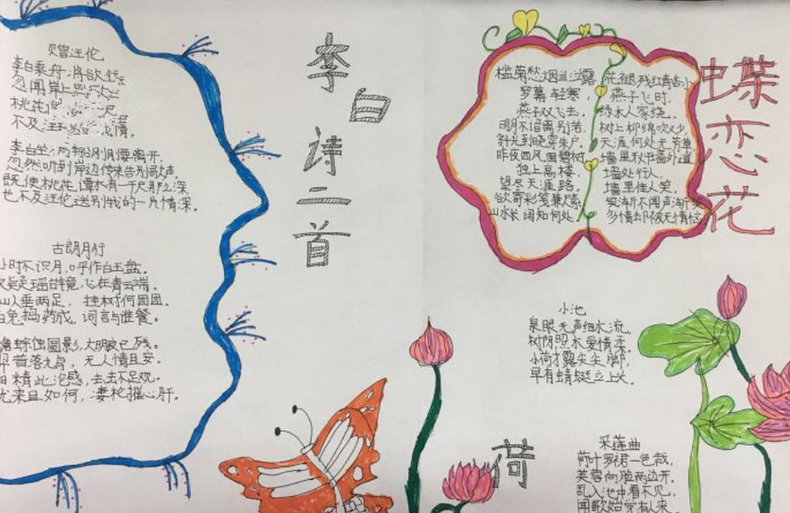 赠汪伦
李白乘舟,将欲
忽闻岸上
桃花
不及汪 情。
李白坐
忽然听到岸边传来告别歌声。
既使桃花潭水有一千尺那么深
也不及汪伦送别我的一片情深。
古朗月行
小时不识月,呼作白玉盘。
疑是瑶台镜,飞在青云端。
仙人垂两足,桂树何团团。
白兔捣药成,
蟾蜍蚀圆影,大明夜已残。
羿昔落九乌,无人清且安。
阴精此沦惑,去去不足观。
忧来其如何,凄怆摧心肝。
李白诗二首
蝶恋花
槛菊愁烟兰泣露
罗幕轻寒,
燕子双飞去。
明月不谙离别苦
斜光到晓穿朱户
昨夜西风凋碧树
独上高楼
望尽天涯路。
欲寄彩笺兼尺素
山水长阔知何处
花褪残红青杏小
燕子飞时,
绿水人家绕。
树上柳绵吹又少
天涯何处无芳草
墙里秋千墙外道
墙外行人
墙里佳人笑
笑渐不闻声渐
多情却被无情
小池
泉眼无声细水流,
树阴照水爱情柔,
小荷才露尖尖脚,
早有蜻蜓立上头。
荷
采莲曲
荷叶罗 一色裁,
芙蓉向脸两边开。
乱入池中看不见,
闻歌始觉有人来